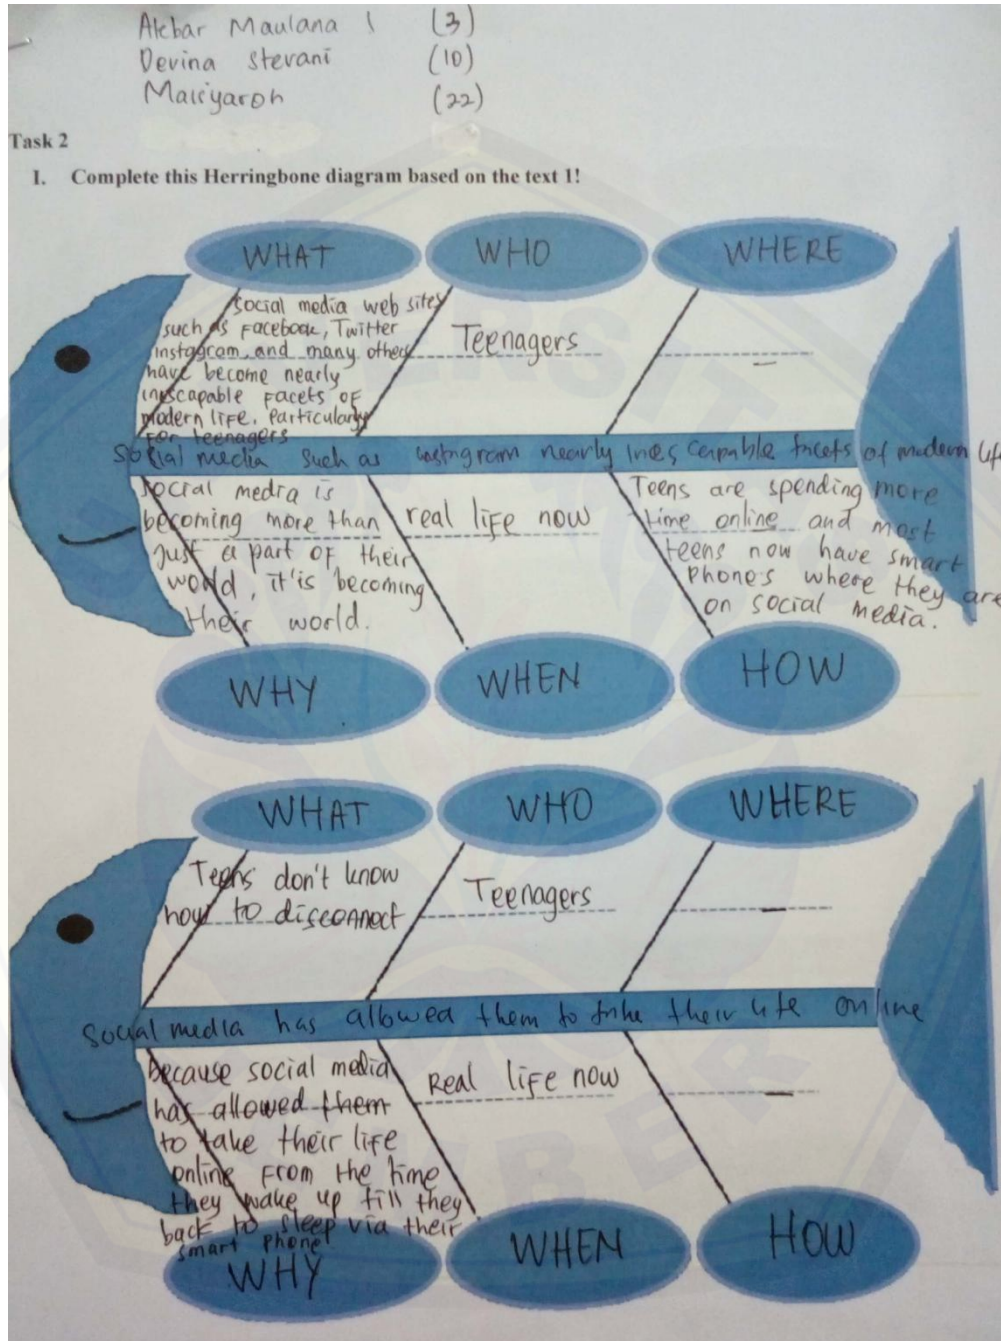 Akbar Maulana I (3)
Devina Stevani (10)
Maliyaroh (22)
Task 2
I. Complete this Herringbone diagram based on the text 1!
WHAT WHO WHERE
social media web sites
such as Facebook, Twitter
instagram, and many others
have become nearly
inescapable facets of
modern life, Particularly
for teenagers
Teenagers
-
Social media such as instagram nearly inescapable facets of modern life
social media is
becoming more than
just a part of their
world, it'is becoming
their world.
real life now
Teens are spending more
time online and most
teens now have smart
phones where they are
on social media.
WHY WHEN HOW
WHAT WHO WHERE
Teens don't know
how to disconnect
Teenagers
-
Social media has allowed them to take their life online
because social media
has allowed them
to take their life
online from the time
they wake up till they
back to sleep via their
smart phone
Real life now
-
WHY WHEN HOW